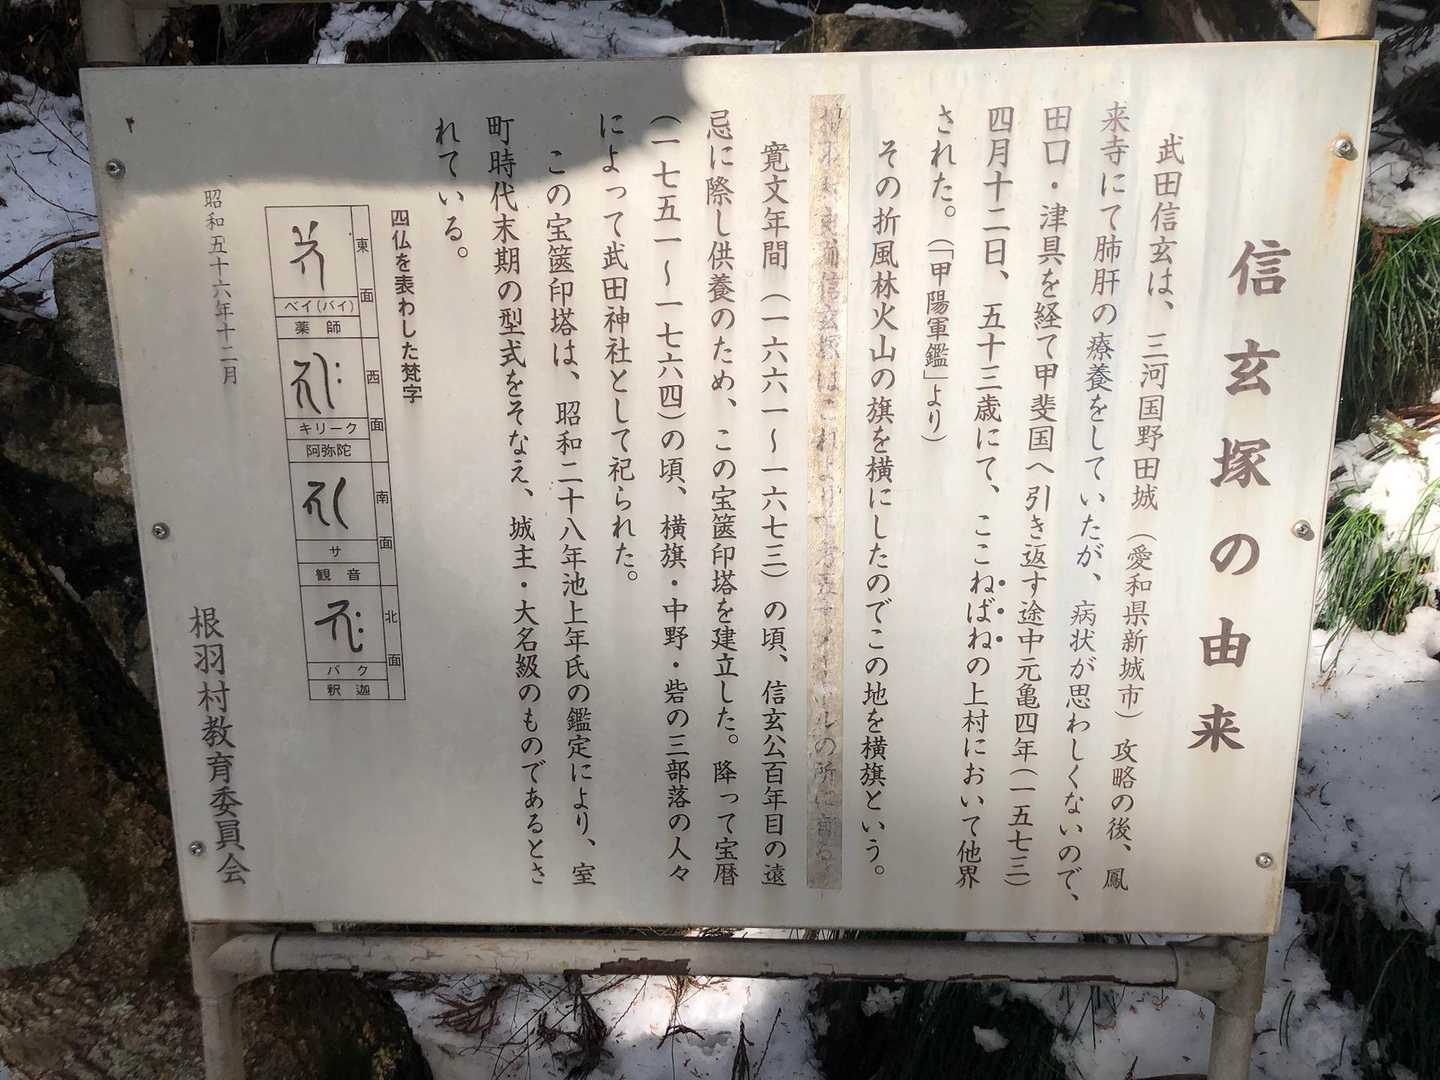 信玄塚の由来
武田信玄は、三河国野田城（愛和県新城市）攻略の後、鳳
来寺にて肺肝の療養をしていたが、病状が思わしくないので、
田口・津具を経て甲斐国へ引き返す途中元亀四年（一五七三）
四月十二日、五十三歳にて、ここねばねの上村において他界
された。（「甲陽軍鑑」より）
その折風林火山の旗を横にしたのでこの地を横旗という。
信玄塚はこれより
の所に
寛文年間（一六六一～一六七三）の頃、信玄公百年目の遠
忌に際し供養のため、この宝篋印塔を建立した。降って宝暦
（一七五一～一七六四）の頃、横旗・中野・砦の三部落の人々
によって武田神社として祀られた。
この宝篋印塔は、昭和二十八年池上年氏の鑑定により、室
町時代末期の型式をそなえ、城主・大名級のものであるとさ
れている。
四仏を表わした梵字
東面
ベイ（バイ）
薬師
西面
キリーク
阿弥陀
南面
サ
観音
北面
バク
釈迦
昭和五十六年十二月
根羽村教育委員会